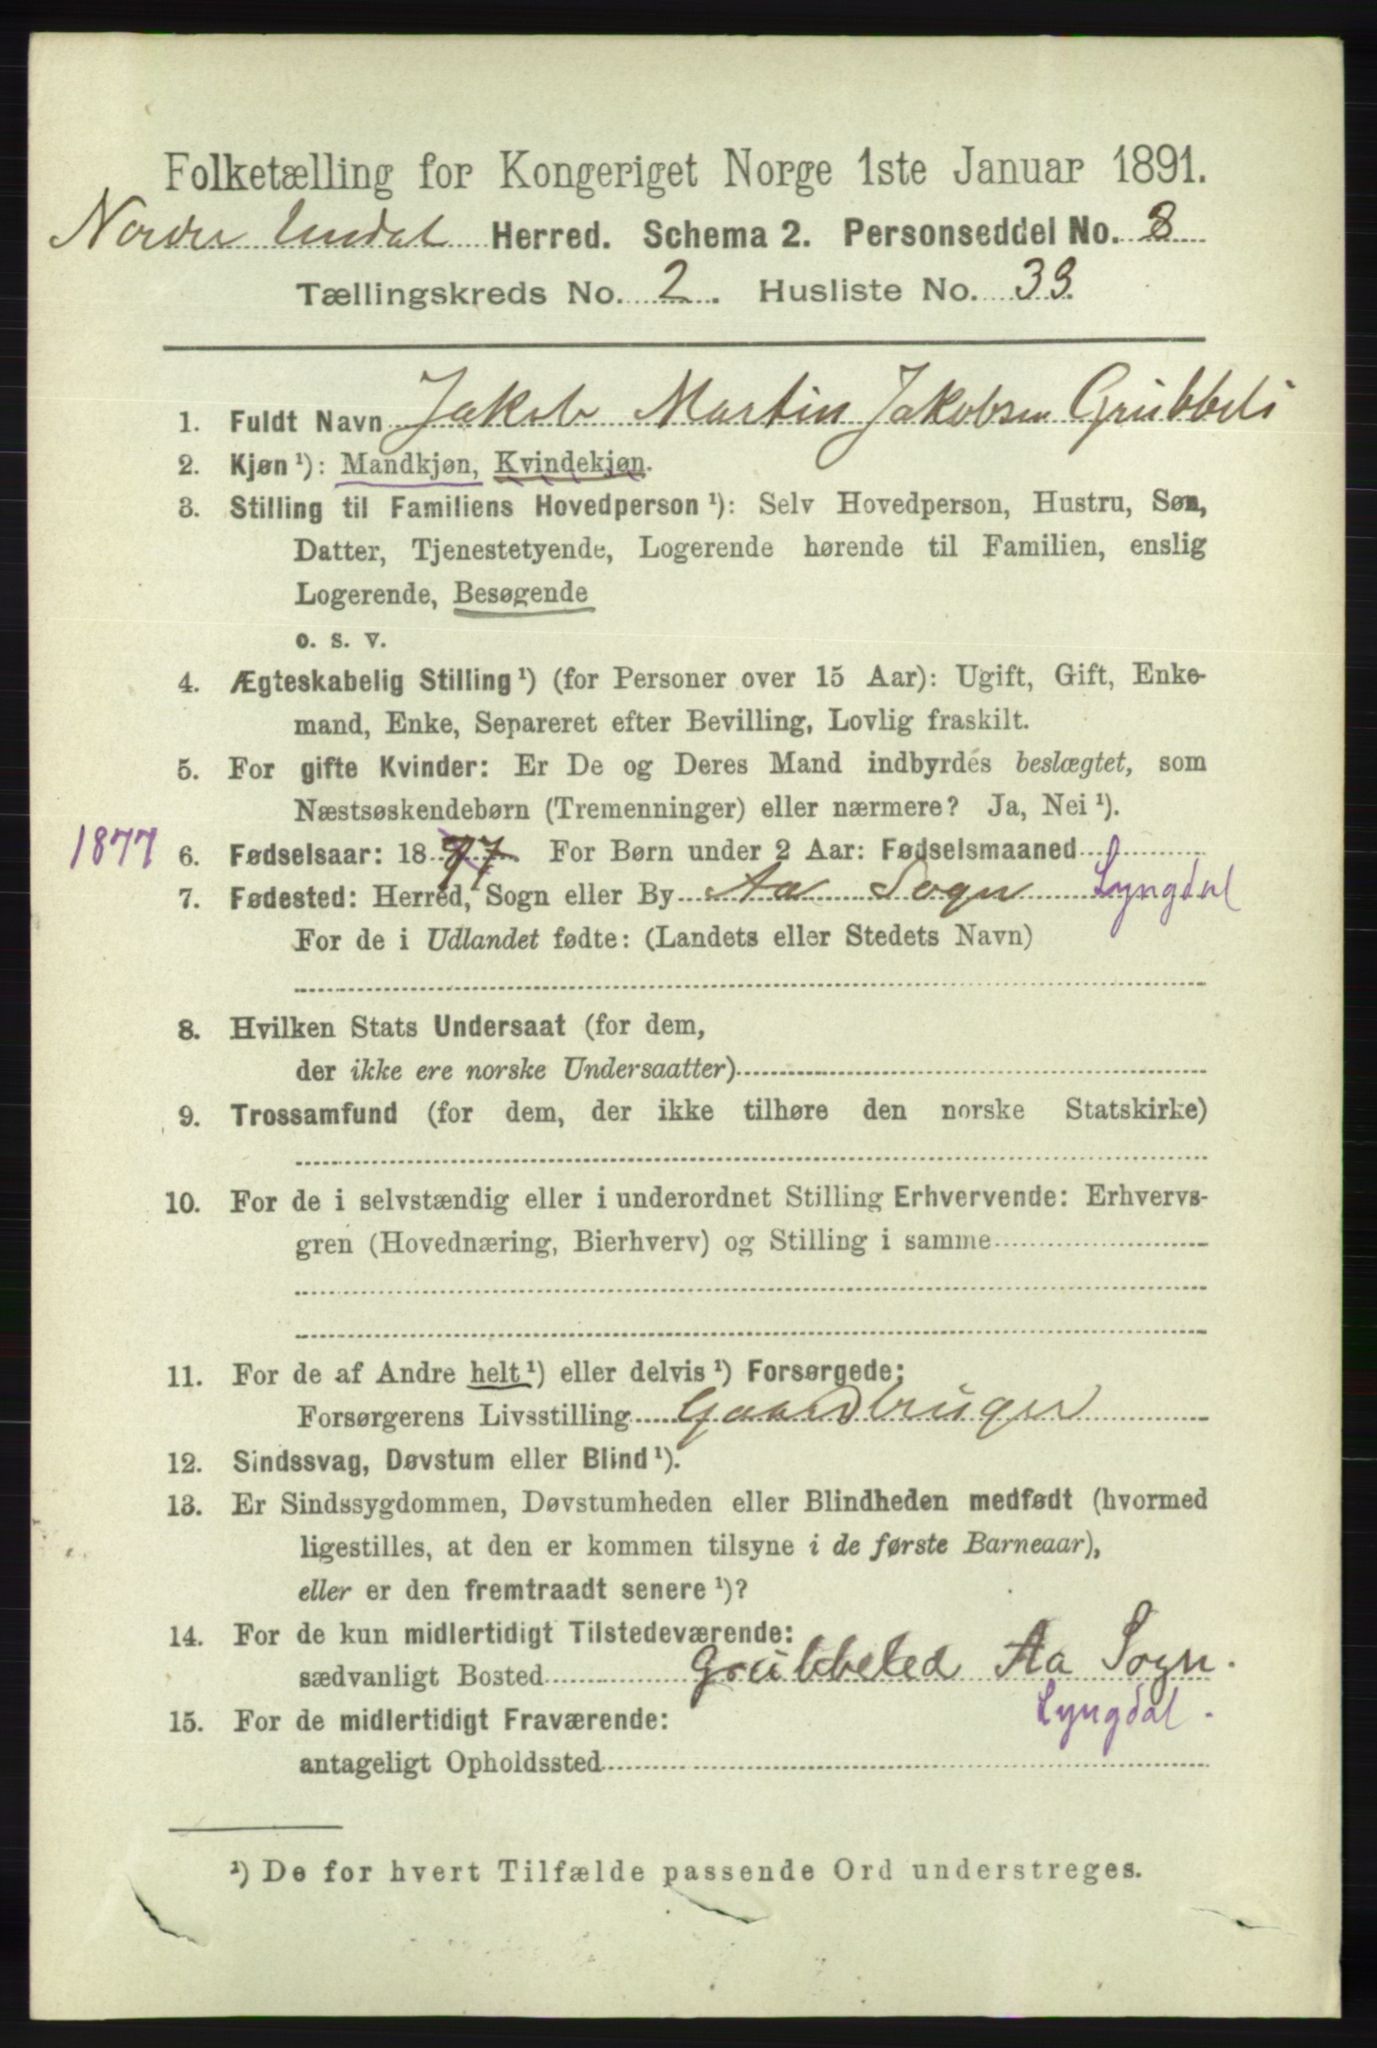 Folketælling for Kongeriget Norge 1ste Januar 1891.
Nordre Undal Herred. Schema 2. Personseddel No. 8
Tællingskreds No. 2. Husliste No. 39.
1. Fuldt Navn Jakob Martin Jakobsen Grubbeli
2. Kjøn ¹): Mandkjøn, Kvindekjøn.
3. Stilling til Familiens Hovedperson ¹): Selv Hovedperson, Hustru, Søn,
Datter, Tjenestetyende, Logerende hørende til Familien, enslig
Logerende, Besøgende
o. s. v.
4. Ægteskabelig Stilling ¹) (for Personer over 15 Aar): Ugift, Gift, Enke-
mand, Enke, Separeret efter Bevilling, Lovlig fraskilt.
5. For gifte Kvinder: Er De og Deres Mand indbyrdes beslægtet, som
Næstsøskendebørn (Tremenninger) eller nærmere? Ja, Nei ¹).
1877 6. Fødselsaar: 18 97 For Børn under 2 Aar: Fødselsmaaned
7. Fødested: Herred, Sogn eller By Aa Sogn Lyngdal
For de i Udlandet fødte: (Landets eller Stedets Navn)
8. Hvilken Stats Undersaat (for dem,
der ikke ere norske Undersaatter)
9. Trossamfund (for dem, der ikke tilhøre den norske Statskirke)
10. For de i selvstændig eller i underordnet Stilling Erhvervende: Erhvervs-
gren (Hovednæring, Bierhverv) og Stilling i samme
11. For de af Andre helt ¹) eller delvis ¹) Forsørgede:
Forsørgerens Livsstilling Gaardbruger
12. Sindssvag, Døvstum eller Blind ¹).
13. Er Sindssygdommen, Døvstumheden eller Blindheden medfødt (hvormed
ligestilles, at den er kommen tilsyne i de første Barneaar),
eller er den fremtraadt senere ¹)?
14. For de kun midlertidigt Tilstedeværende:
sædvanligt Bosted Grubbeled Aa Sogn.
Lyngdal.
15. For de midlertidigt Fraværende:
antageligt Opholdssted
¹) De for hvert Tilfælde passende Ord understreges.